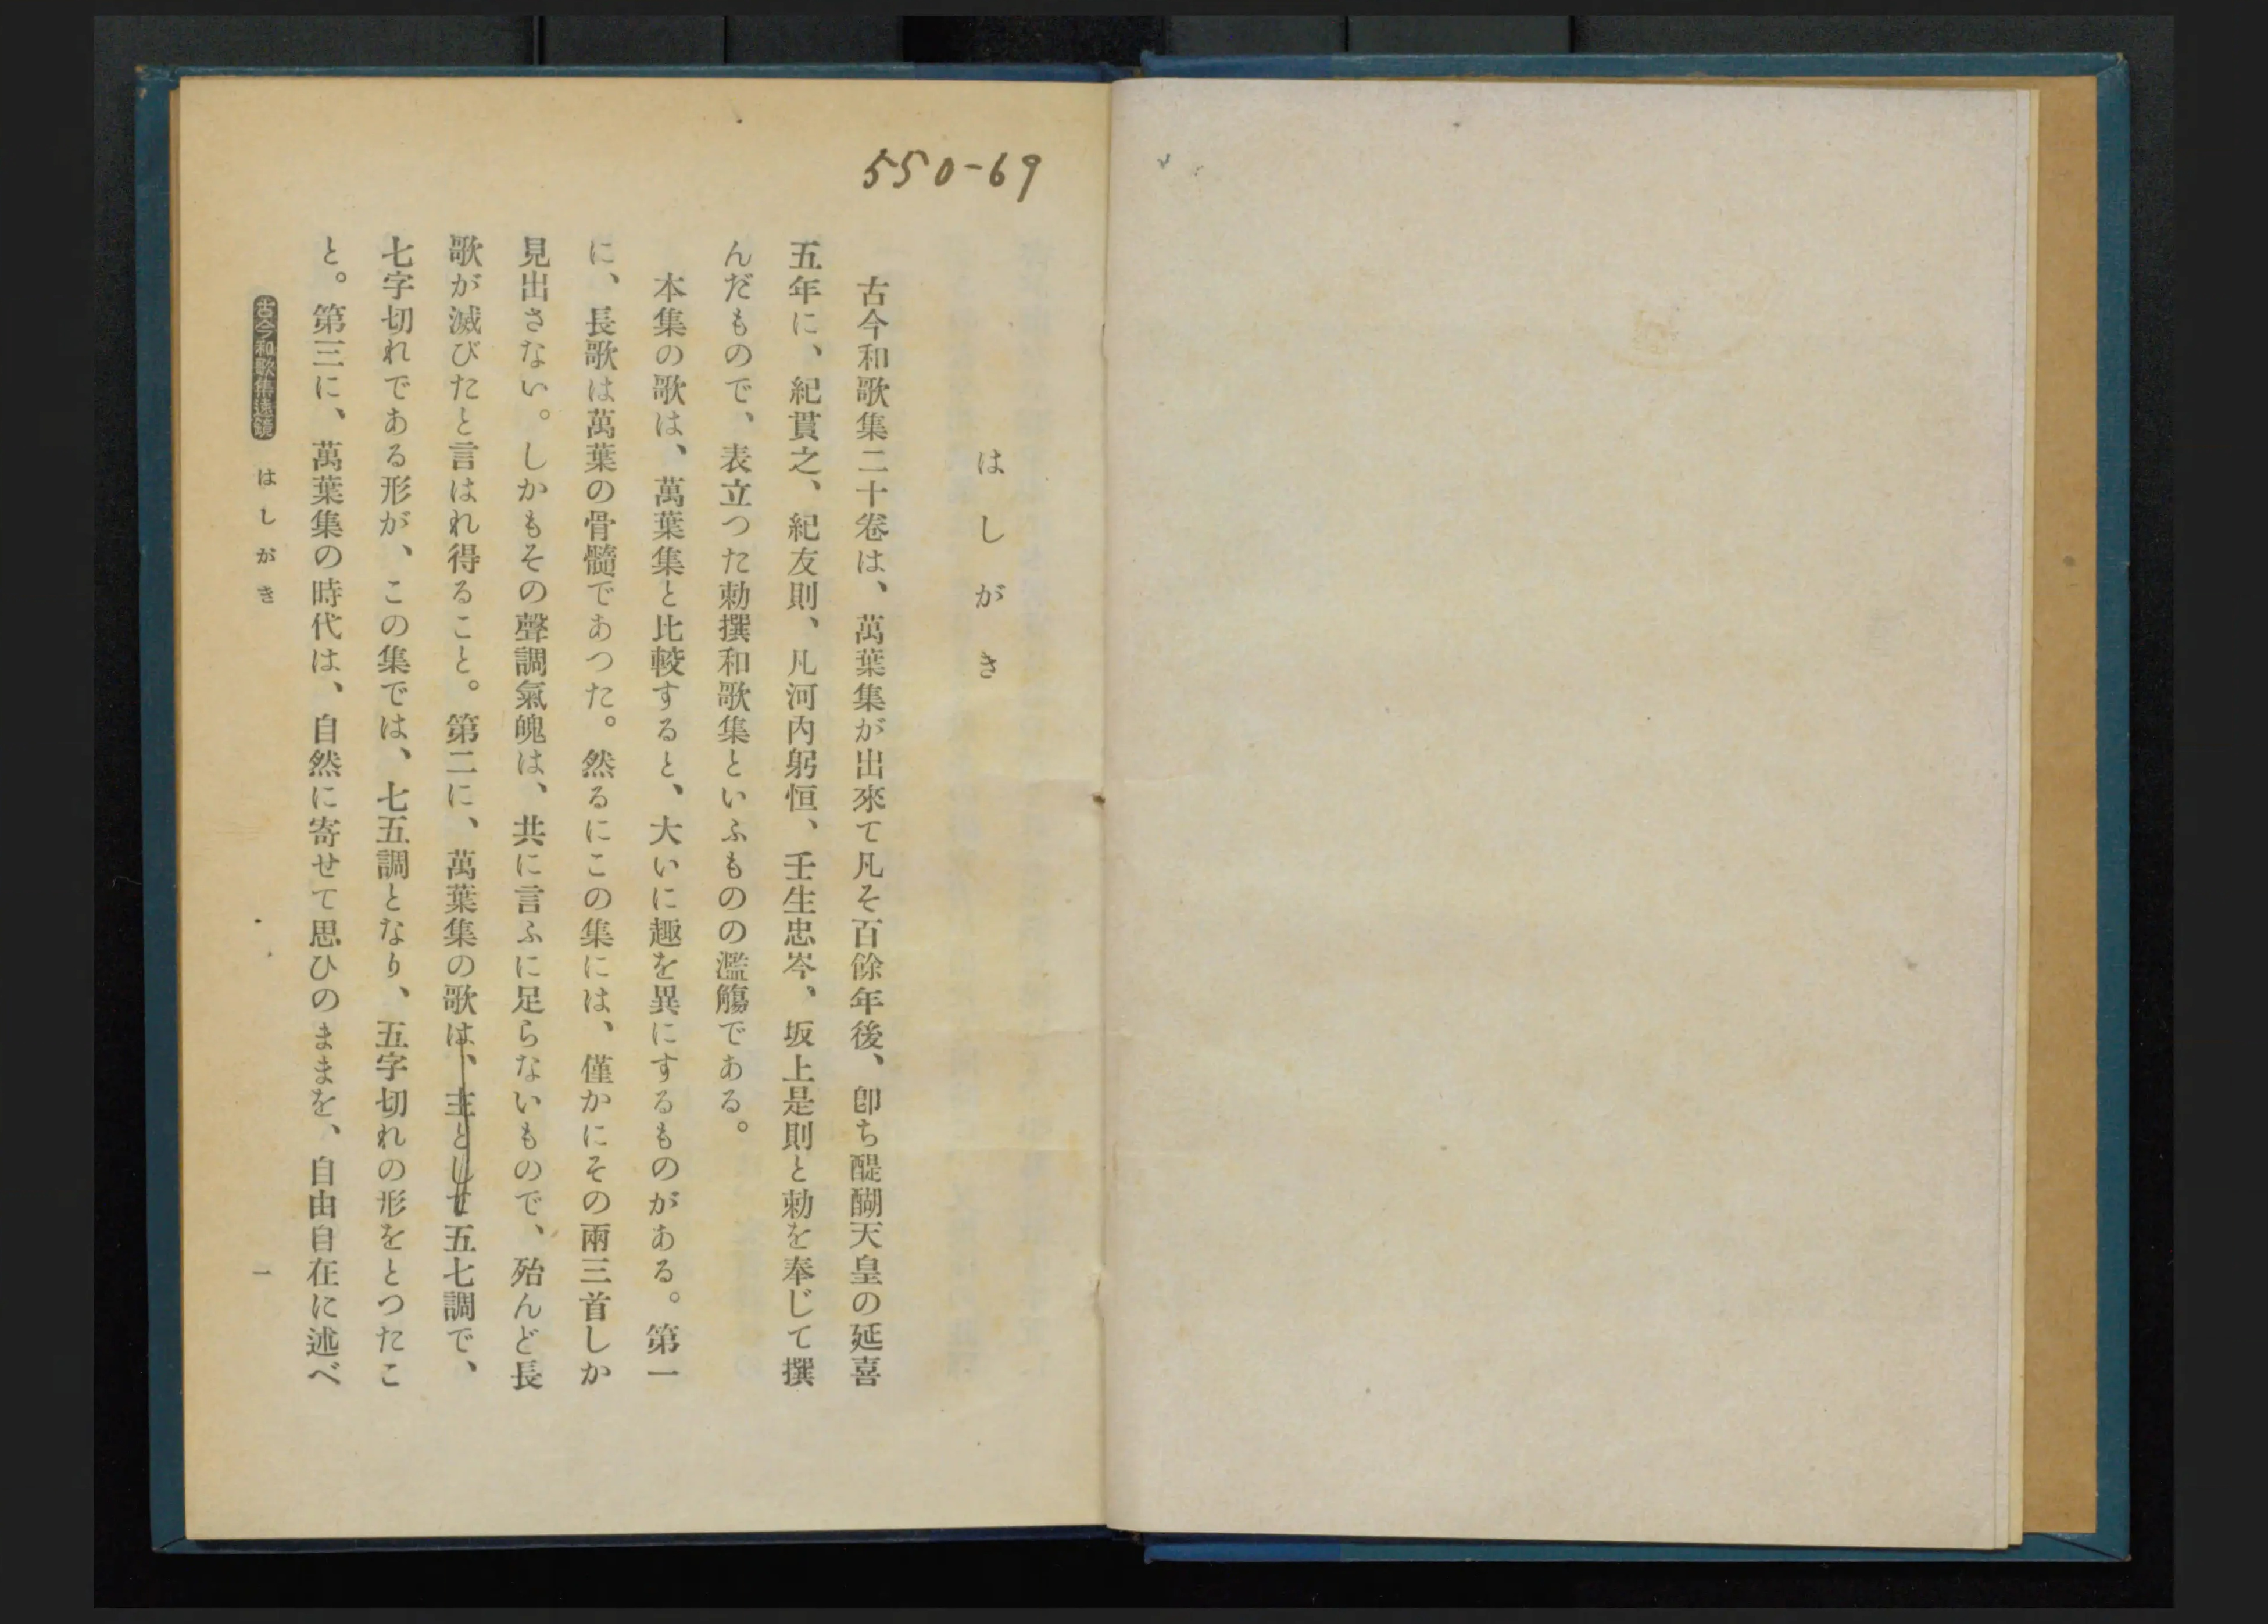 550-69
はしがき
古今和歌集二十卷は、萬葉集が出來て凡そ百餘年後、卽ち醍醐天皇の延喜
五年に、紀貫之、紀友則、凡河內躬恒、壬生忠岑、坂上是則と勅を奉じて撰
んだもので、表立つた勅撰和歌集といふものの濫觴である。
本集の歌は、萬葉集と比較すると、大いに趣を異にするものがある。第一
に、長歌は萬葉の骨髓であつた。然るにこの集には、僅かにその兩三首しか
見出さない。しかもその聲調氣魄は、共に言ふに足らないもので、殆んど長
歌が滅びたと言はれ得ること。第二に、萬葉集の歌は、主として五七調で、
七字切れである形が、この集では、七五調となり、五字切れの形をとつたこ
と。第三に、萬葉集の時代は、自然に寄せて思ひのままを、自由自在に述べ
古今和歌集遠鏡 はしがき 一